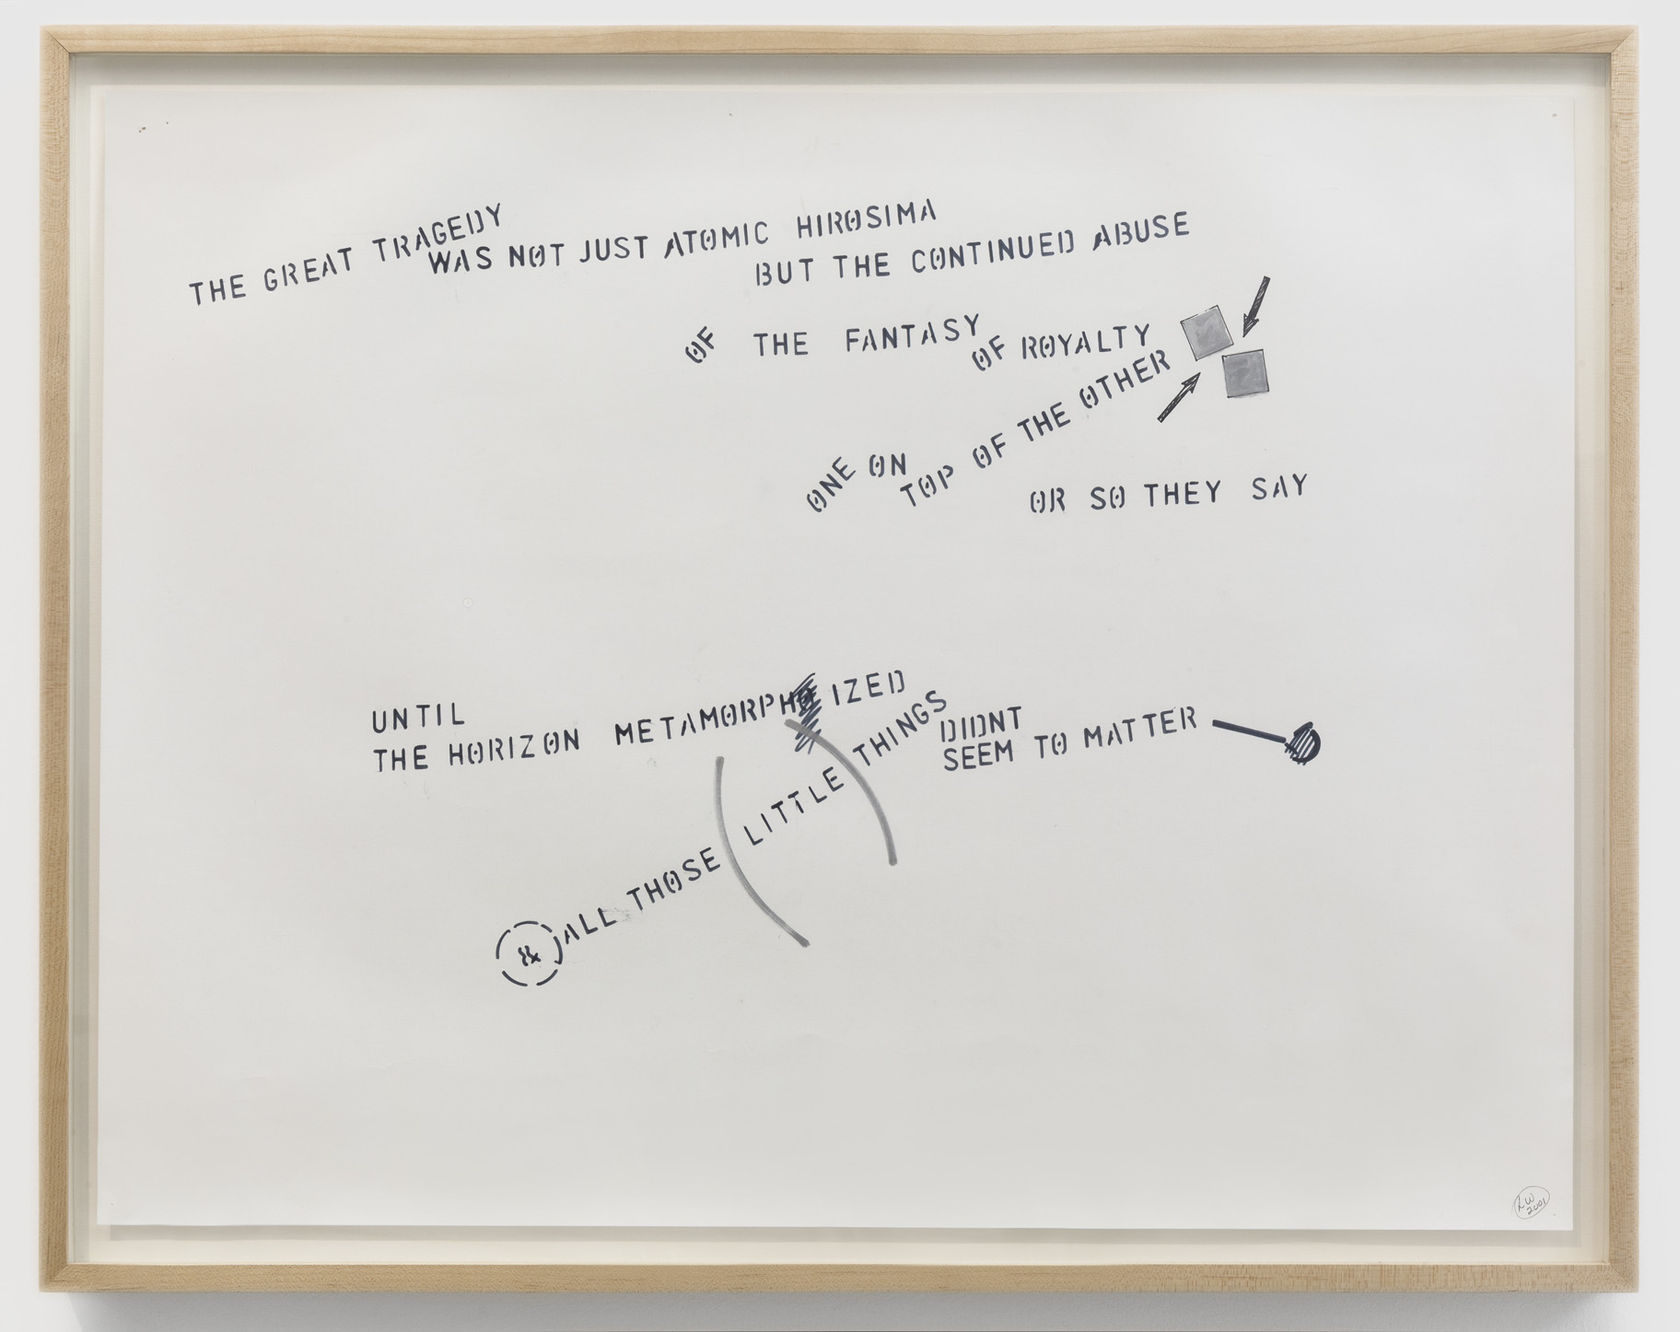 THE GREAT TRAGEDY
WAS NOT JUST ATOMIC HIROSIMA
BUT THE CONTINUED ABUSE
OF THE FANTASY
OF ROYALTY
ONE ON
TOP OF THE OTHER
OR SO THEY SAY
UNTIL
THE HORIZON METAMORPHOIZED
& ALL THOSE (LITTLE THINGS)
DIDNT
SEEM TO MATTER
LW
2001